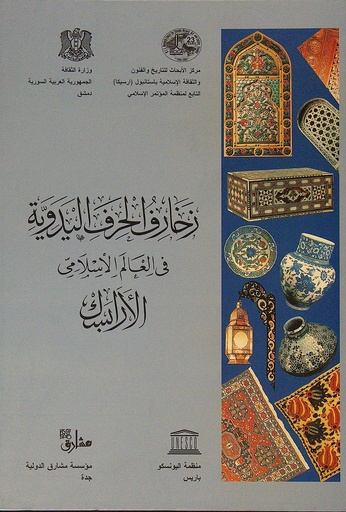 مركز الأبحاث للتاريخ والفنون
والثقافة الإسلامية باستانبول (ارسيكا)
التابع لمنظمة المؤتمر الإسلامي
وزارة الثقافة
الجمهورية العربية السورية
دمشق
زخارف الحرف اليدوية
في العالم الإسلامي
الأرابسك
منظمة اليونسكو
باريس
مشارق
مؤسسة مشارق الدولية
جدة
UNESCO